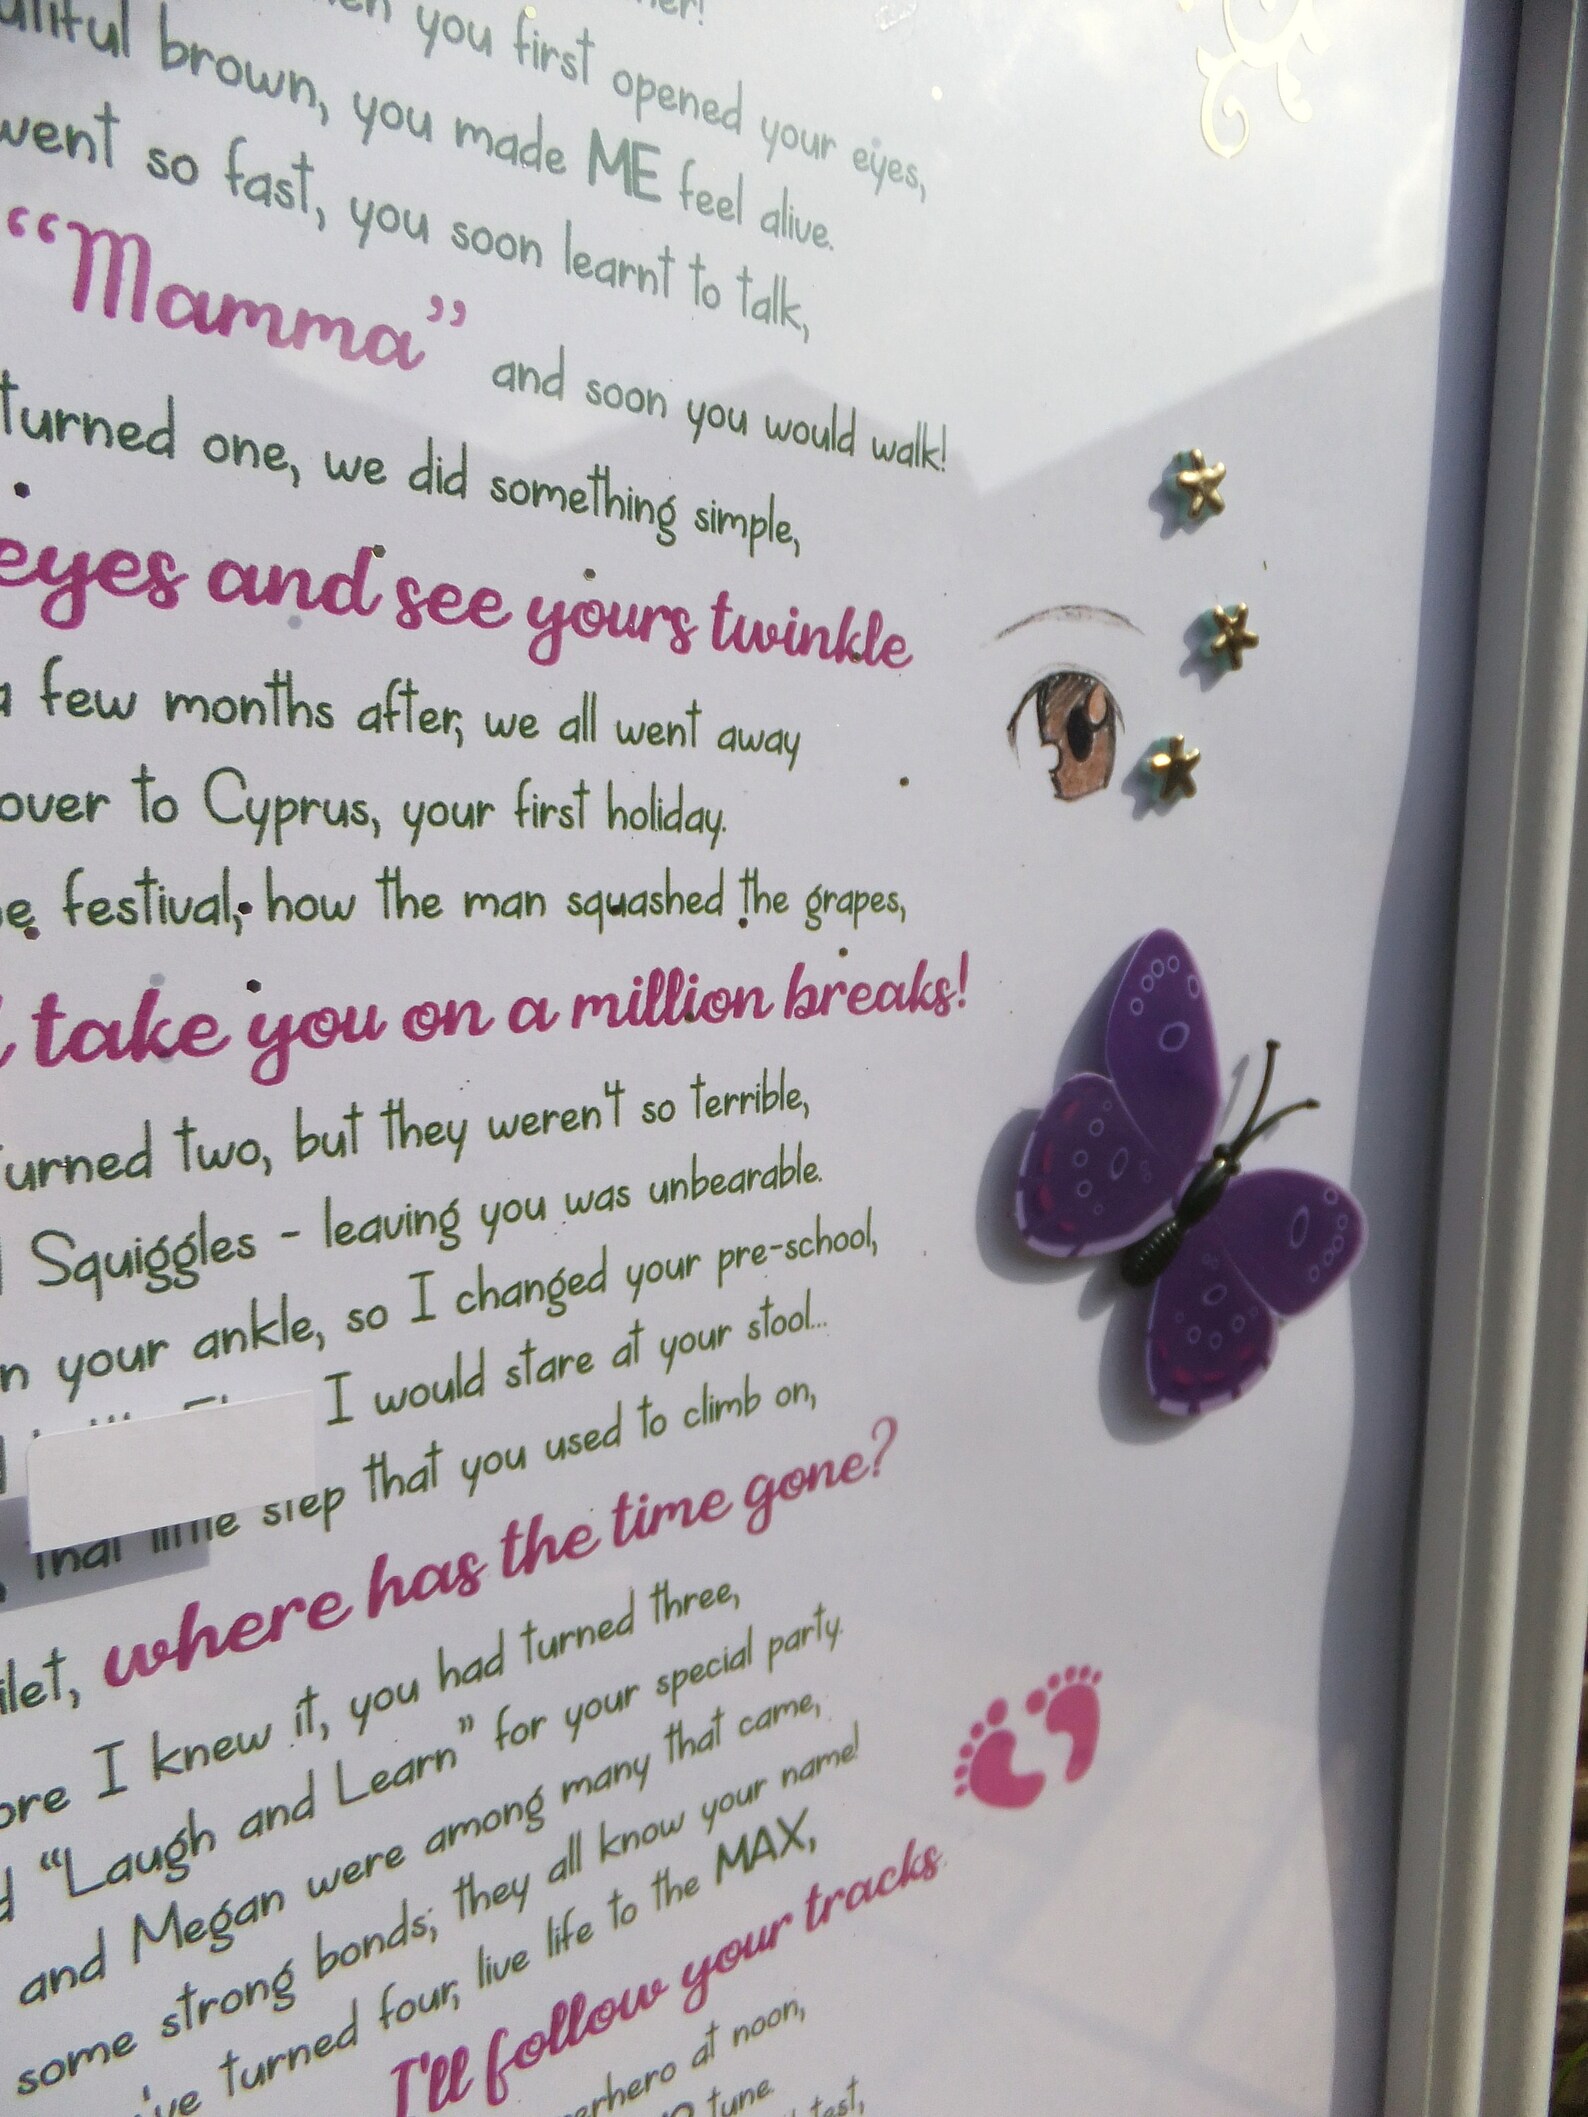 you first opened your eyes,
brown, you made ME feel alive.
went so fast, you soon learnt to talk,
"Mamma" and soon you would walk!
turned one, we did something simple,
eyes and see yours twinkle
a few months after, we all went away
over to Cyprus, your first holiday.
festival, how the man squashed the grapes,
take you on a million breaks!
turned two, but they weren't so terrible,
Squiggles - leaving you was unbearable.
your ankle, so I changed your pre-school,
I would stare at your stool...
that little step that you used to climb on,
where has the time gone?
I knew it, you had turned three,
"Laugh and Learn" for your special party.
and Megan were among many that came,
some strong bonds; they all know your name!
turned four, live life to the MAX,
I'll follow your tracks
at noon,
tune.